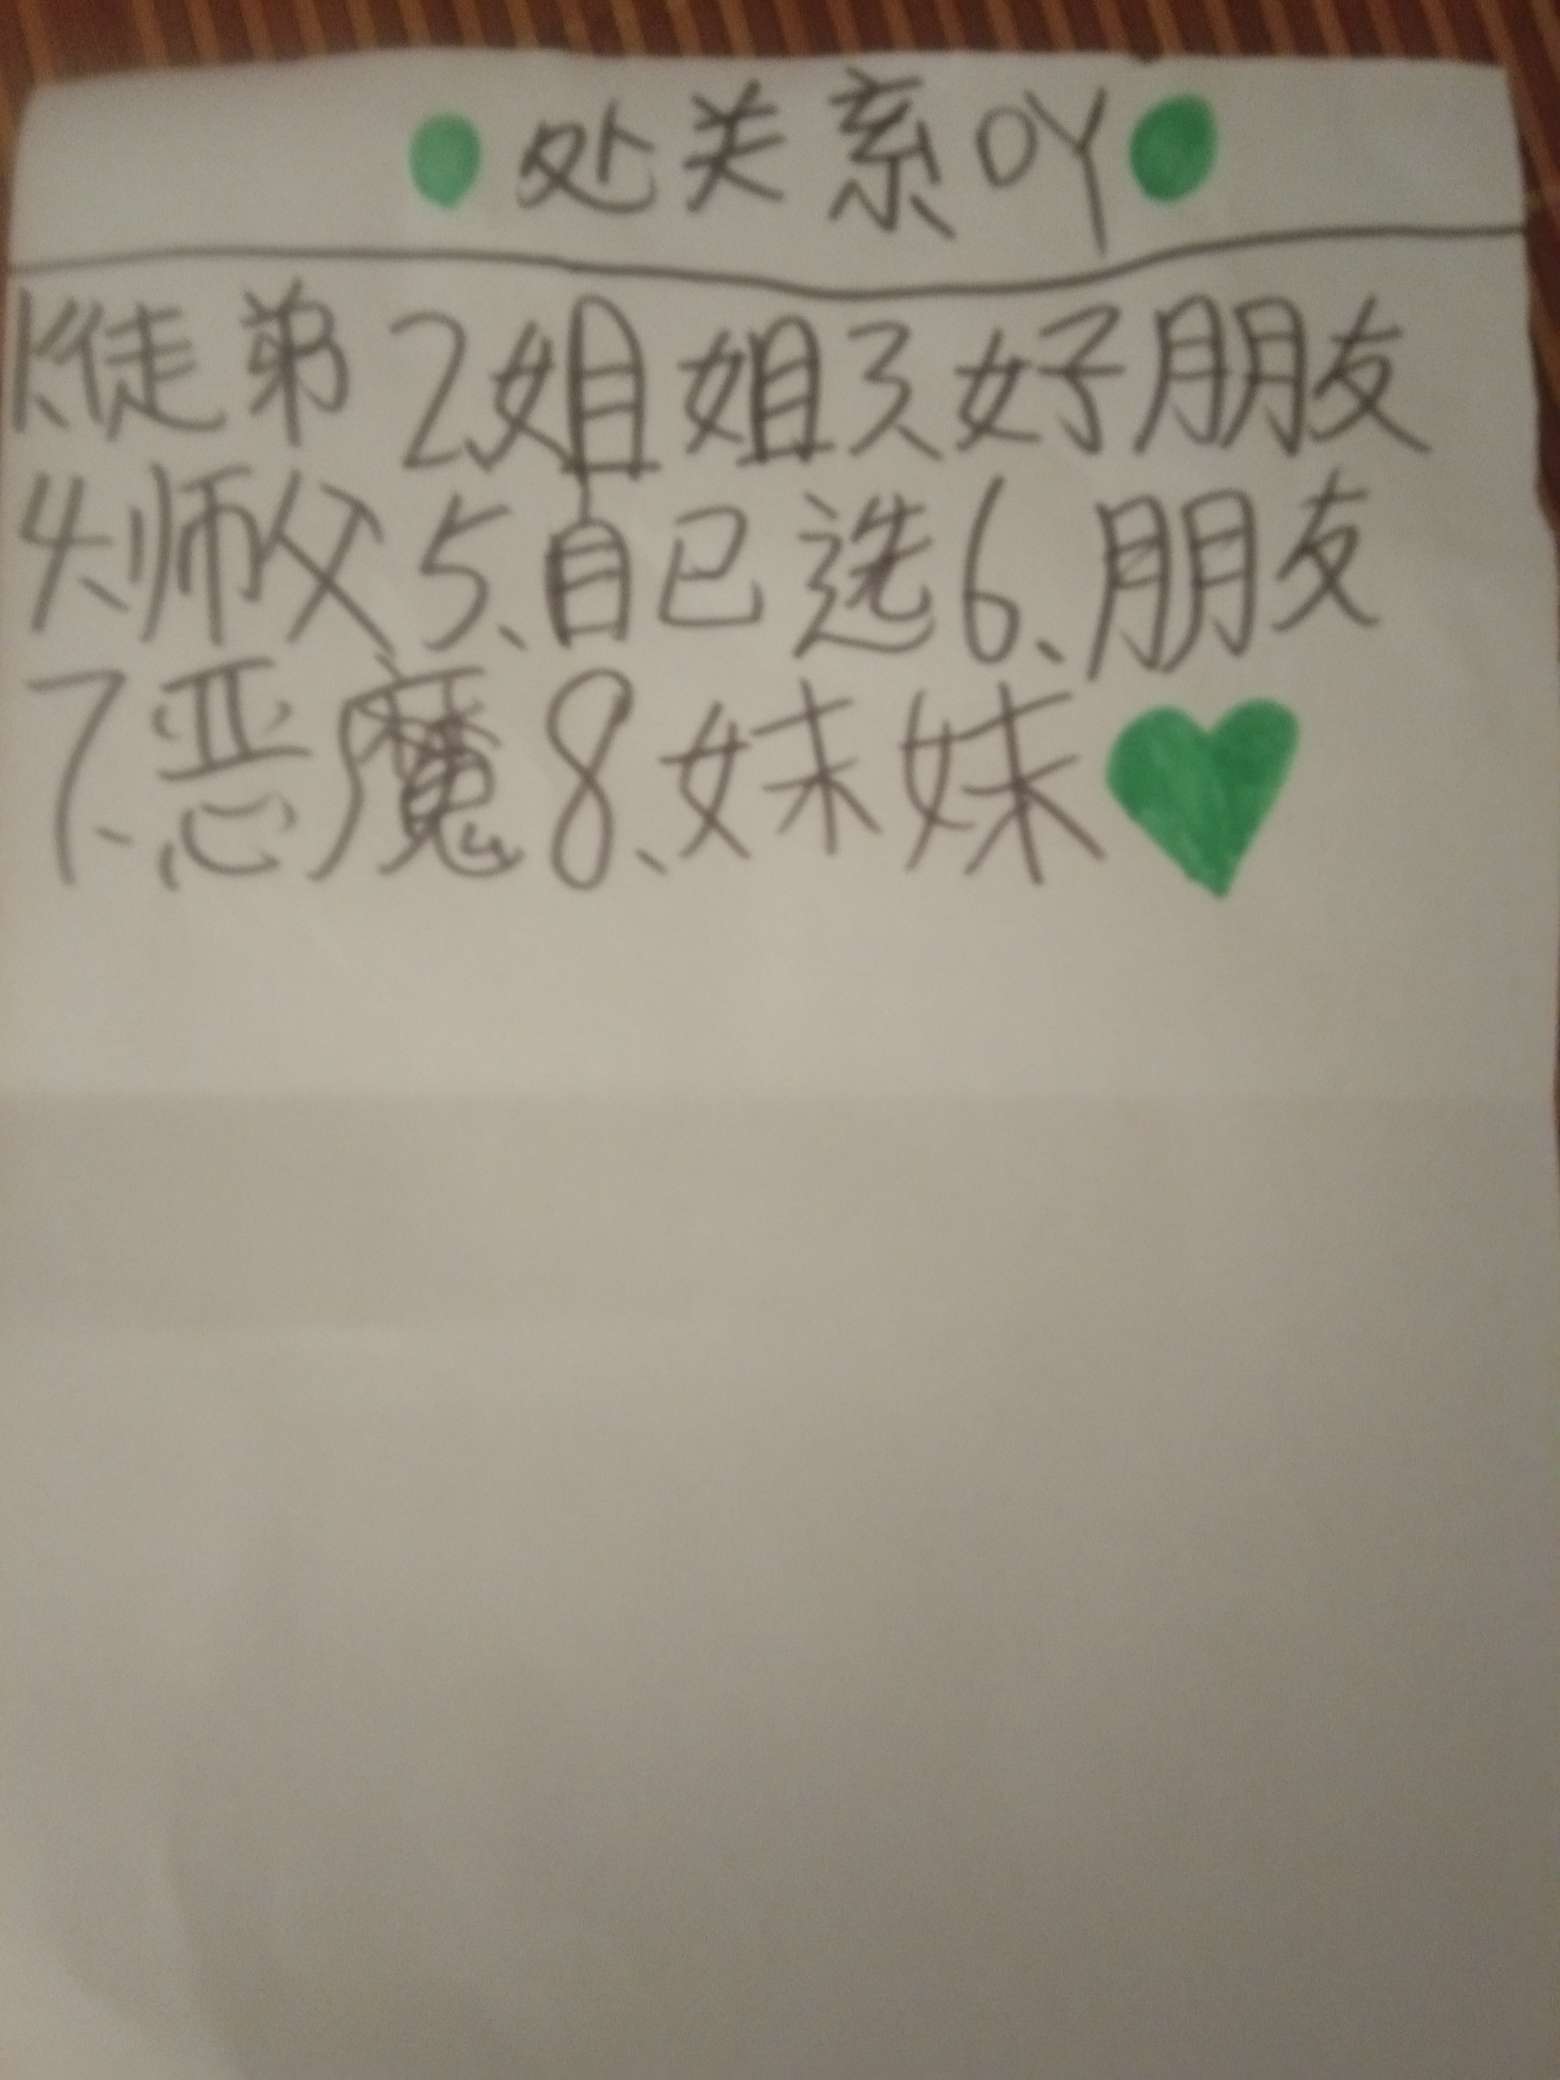 处关系OY
1、徒弟 2、姐姐 3、好朋友
4、师父 5、自己选 6、朋友
7、恶魔 8、妹妹